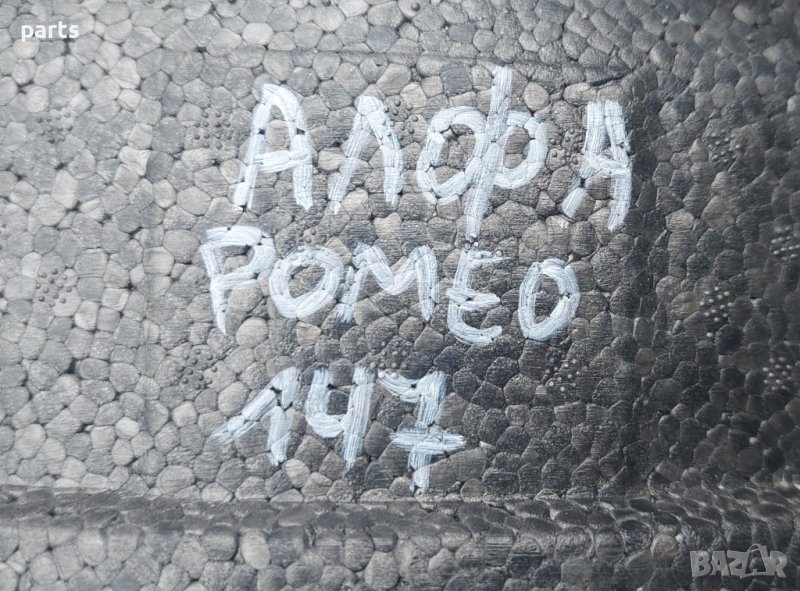 parts
АЛФА
РОМЕО
147
BAZAR